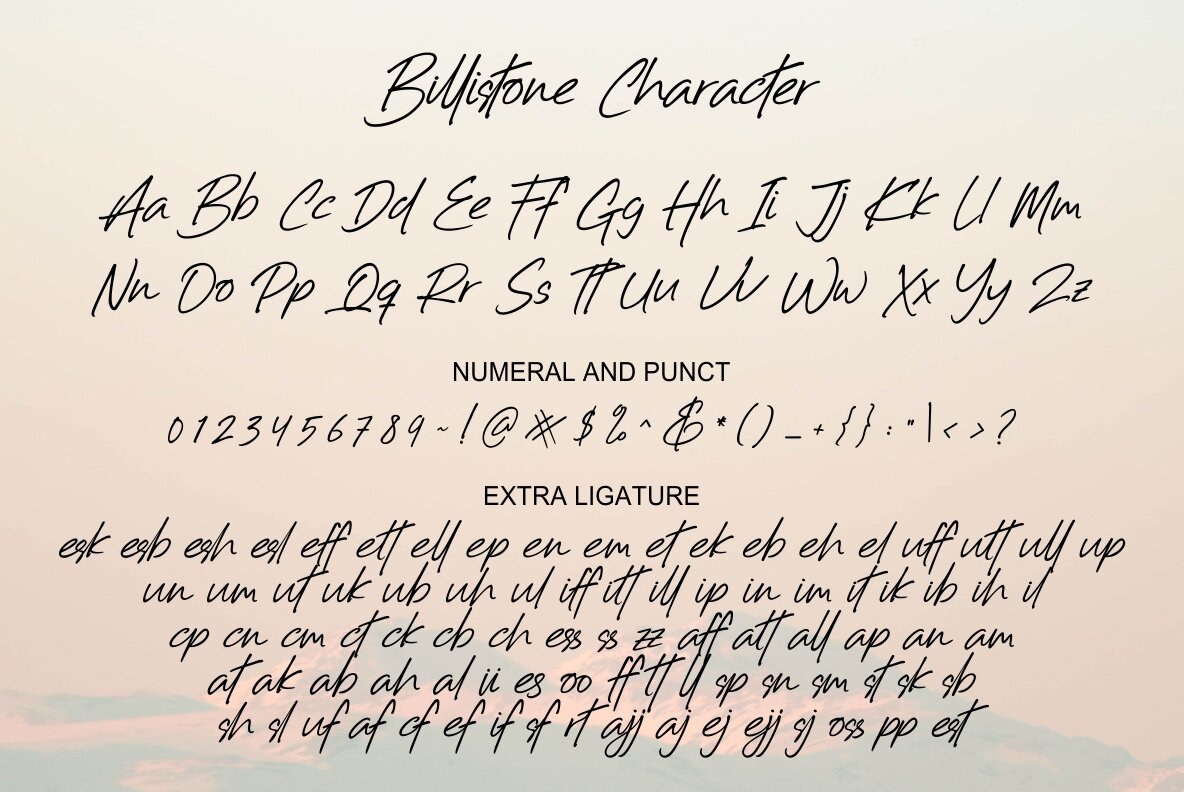 Billistone Character
Aa Bb Cc Dd Ee Ff Gg Hh Ii Jj Kk Ll Mm
Nn Oo Pp Qq Rr Ss Tt Uu Vv Ww Xx Yy Zz
NUMERAL AND PUNCT
0 1 2 3 4 5 6 7 8 9 ~ ! @ # $ % ^ & * ( ) _ + { } : " | < > ?
EXTRA LIGATURE
esk esb esh esl eff ett ell ep en em et ek eb eh el uff utt ull up
un um ut uk ub uh ul iff itt ill ip in im it ik ib ih il
cp cn cm ct ck cb ch ess ss zz aff att all ap an am
at ak ab ah al ii es oo ff tt ll sp sn sm st sk sb
sh sl uf af cf ef if sf rt ajj aj ej ejj sj oss pp est